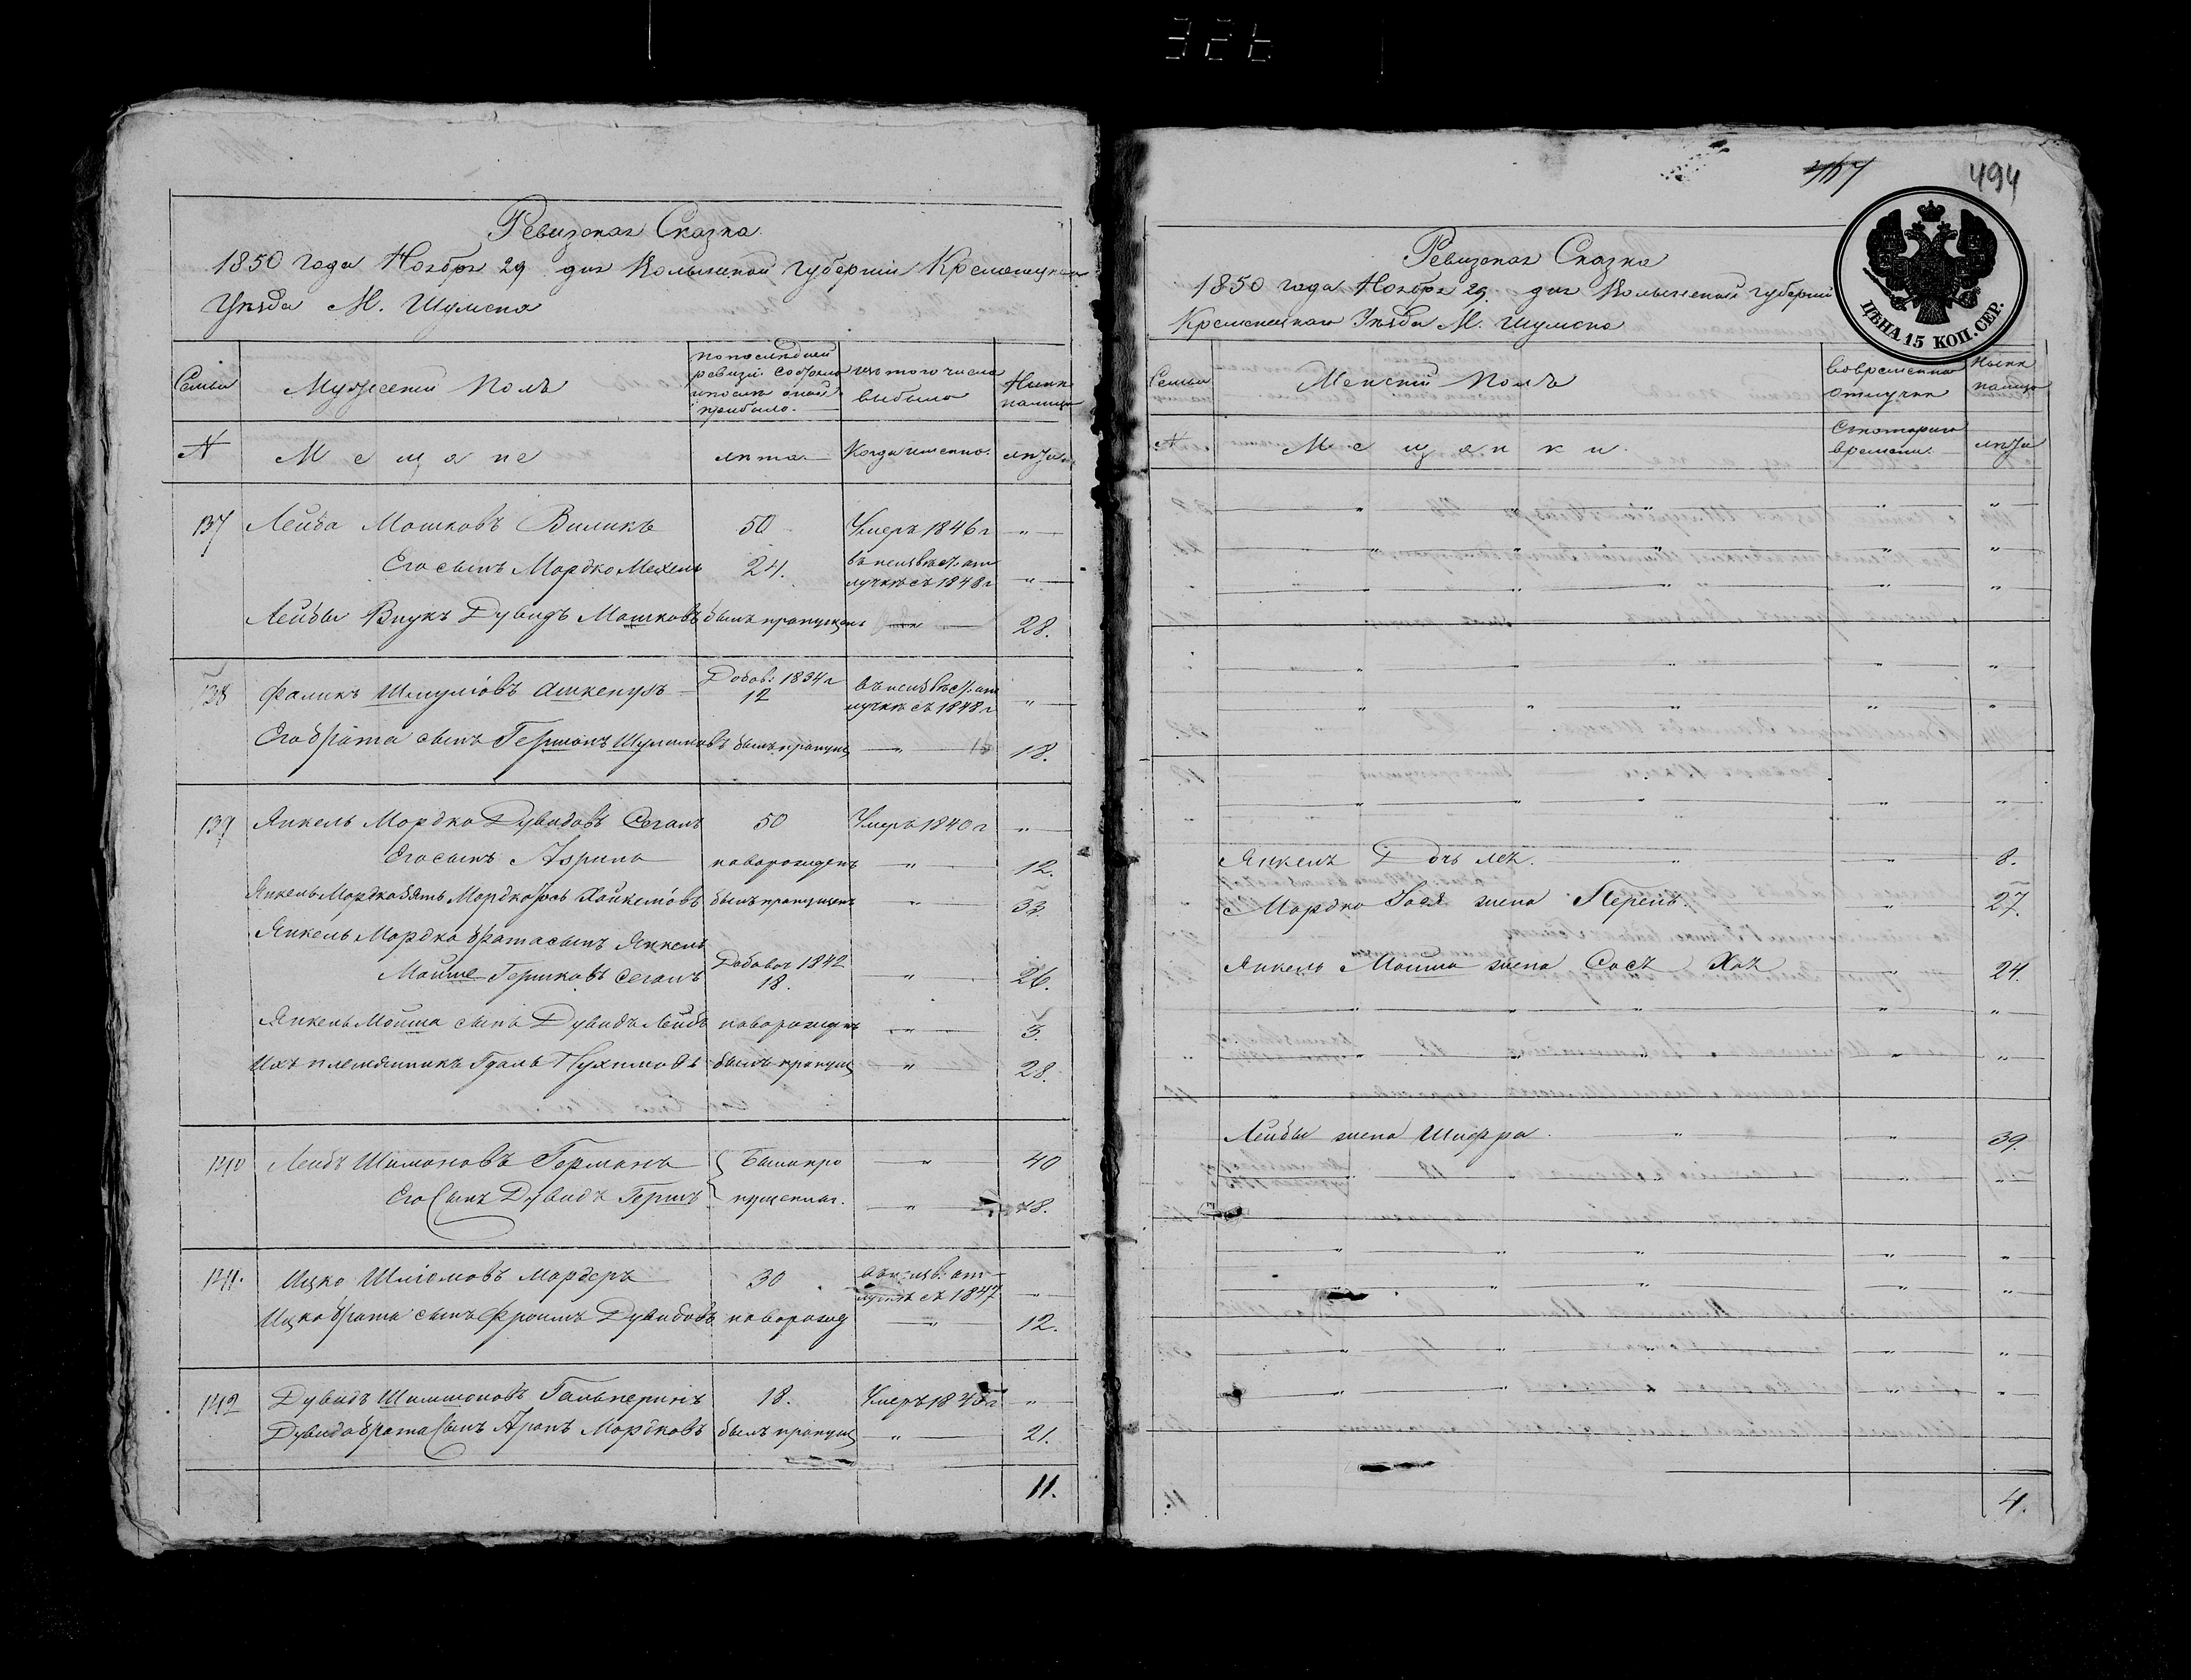 326
Ревизская Сказка
1850 года Ноября 29 дня Волынской губернии Кременецкаго
Уезда М. Шумска
Семьи
Мужеский Полъ
По последней ревизіи состояло и после оной прибыло.
Изъ того числа выбыло
Ныне налицо
№
Мещане
лета
Когда именно.
лета
137 Лейба Мошковъ Виликъ 50 Умеръ 1846 г "
Его сынъ Мордко Мехель 24. въ неизвест: отлучке съ 1848 г "
Лейбы Внукъ Дувидъ Мошковъ былъ пропущенъ " 28.
138 Фаликъ Шмулiовъ Добов: 1834 г 12 въ неизвест: отлучке съ 1848 г "
Его брата сынъ Гершонъ былъ пропущ " 18.
139 Янкель Мордко Дувидовъ Сегалъ 50 Умеръ 1840 г "
Его сынъ новорожденъ " 12.
Янкель Мордка зять Мордко былъ пропущенъ " 33.
Янкель Мордка брата сынъ Янкель
Мойше Гершковъ Сегалъ Добавоч 1842 18. " 26.
Янкель Мойша сынъ Дувидъ Лейбъ новорожден " 3.
Ихъ племянникъ Нухимовъ былъ пропущ " 28.
140 Лейбъ Шимоновъ Германъ Были про " 40
Его Сынъ Дувидъ Гершъ пущенны. " 18.
141. Ицко Шлiомовъ 30 въ неизв: отлучке съ 1847 "
Ицка брата сынъ Фроимъ Дувидовъ новорожд " 12.
142 Дувидъ Шимшоновъ Гальперинъ 18. Умеръ "
Дувида брата Сынъ Аронъ Мордковъ былъ пропущ " 21.
11.
494
ЦЕНА 15 КОП. СЕР.
Ревизская Сказка
1850 года Ноября 29. дня Волынской губерніи
Кременецкаго Уезда М. Шумска
Семьи
Женскій Полъ
Во временной отлучке
Ныне налицо
№
Мещанки.
Съ котораго времени.
лета
Янкеля Дочь Лея. " " 8.
Мордко жена Перель. " 27.
Янкель Мойша жена Хая " 24.
Лейбы жена Шифра. " " 39.
4.